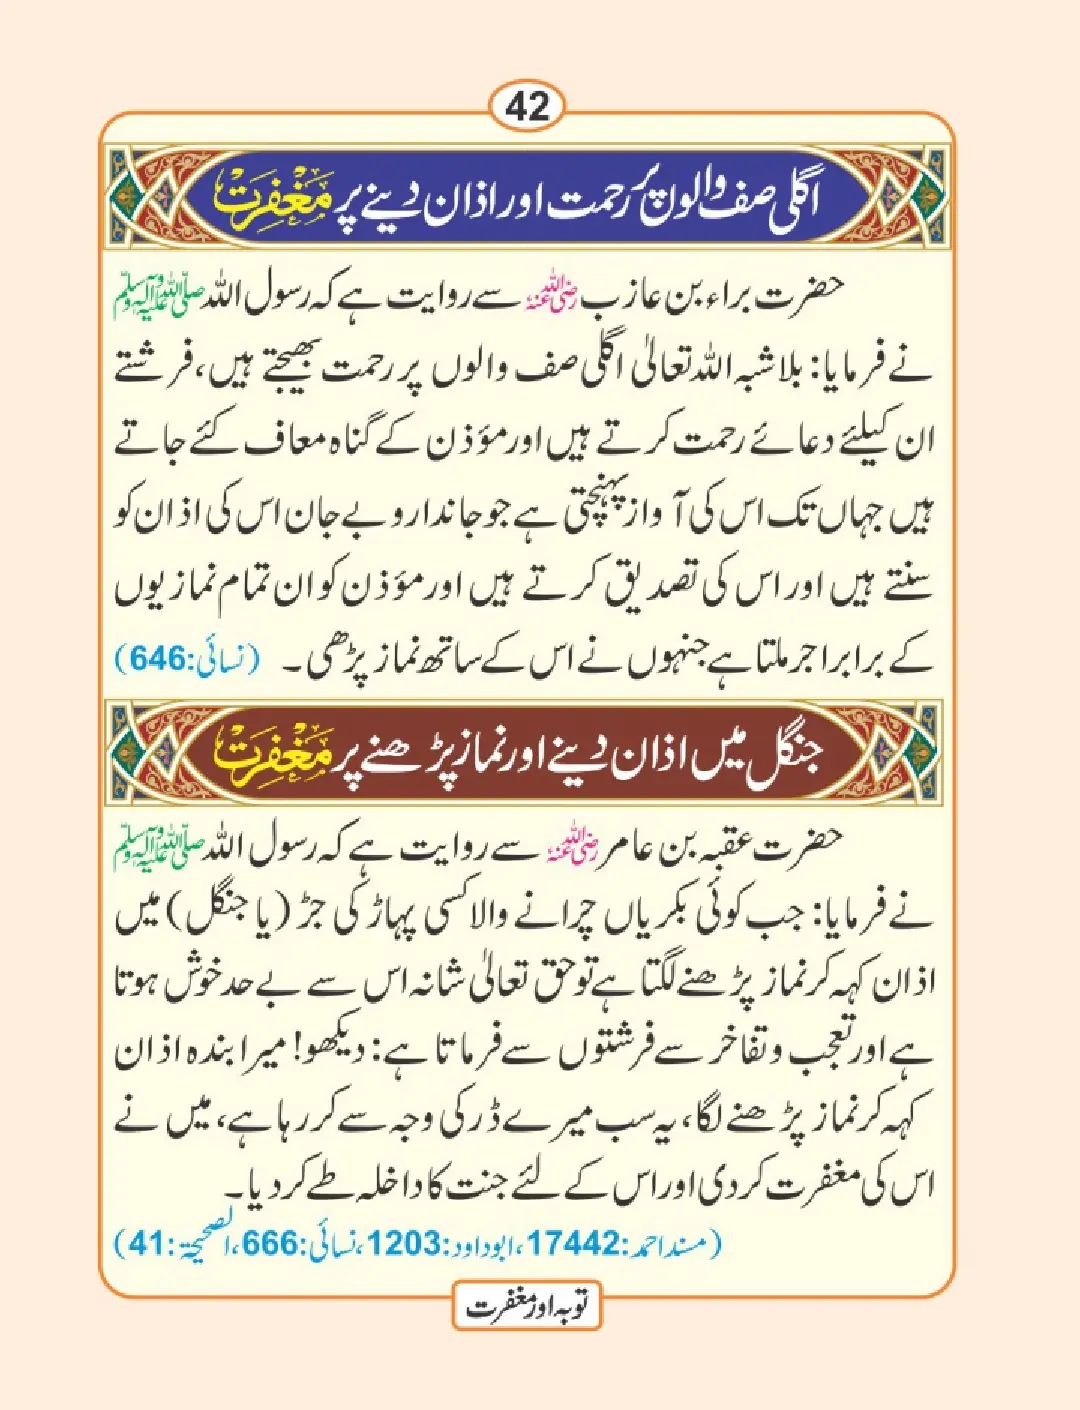 42
اگلی صف والوں پر رحمت اور اذان دینے پر مغفرت
حضرت براء بن عازب رضی اللہ عنہ سے روایت ہے کہ رسول اللہ صلی اللہ علیہ وآلہ وسلم
نے فرمایا: بلاشبہ اللہ تعالیٰ اگلی صف والوں پر رحمت بھیجتے ہیں، فرشتے
ان کیلئے دعائے رحمت کرتے ہیں اور مؤذن کے گناہ معاف کئے جاتے
ہیں جہاں تک اس کی آواز پہنچتی ہے جو جاندار و بے جان اس کی اذان کو
سنتے ہیں اور اس کی تصدیق کرتے ہیں اور مؤذن کو ان تمام نمازیوں
کے برابر اجر ملتا ہے جنہوں نے اس کے ساتھ نماز پڑھی۔ (نسائی:646)
جنگل میں اذان دینے اور نماز پڑھنے پر مغفرت
حضرت عقبہ بن عامر رضی اللہ عنہ سے روایت ہے کہ رسول اللہ صلی اللہ علیہ وآلہ وسلم
نے فرمایا: جب کوئی بکریاں چرانے والا کسی پہاڑ کی جڑ (یا جنگل) میں
اذان کہہ کر نماز پڑھنے لگتا ہے تو حق تعالیٰ شانہ اس سے بے حد خوش ہوتا
ہے اور تعجب و تفاخر سے فرشتوں سے فرماتا ہے: دیکھو! میرا بندہ اذان
کہہ کر نماز پڑھنے لگا، یہ سب میرے ڈر کی وجہ سے کر رہا ہے، میں نے
اس کی مغفرت کردی اور اس کے لئے جنت کا داخلہ طے کردیا۔
(مسند احمد:17442، ابوداود:1203، نسائی:666، الصحیحۃ:41)
توبہ اور مغفرت